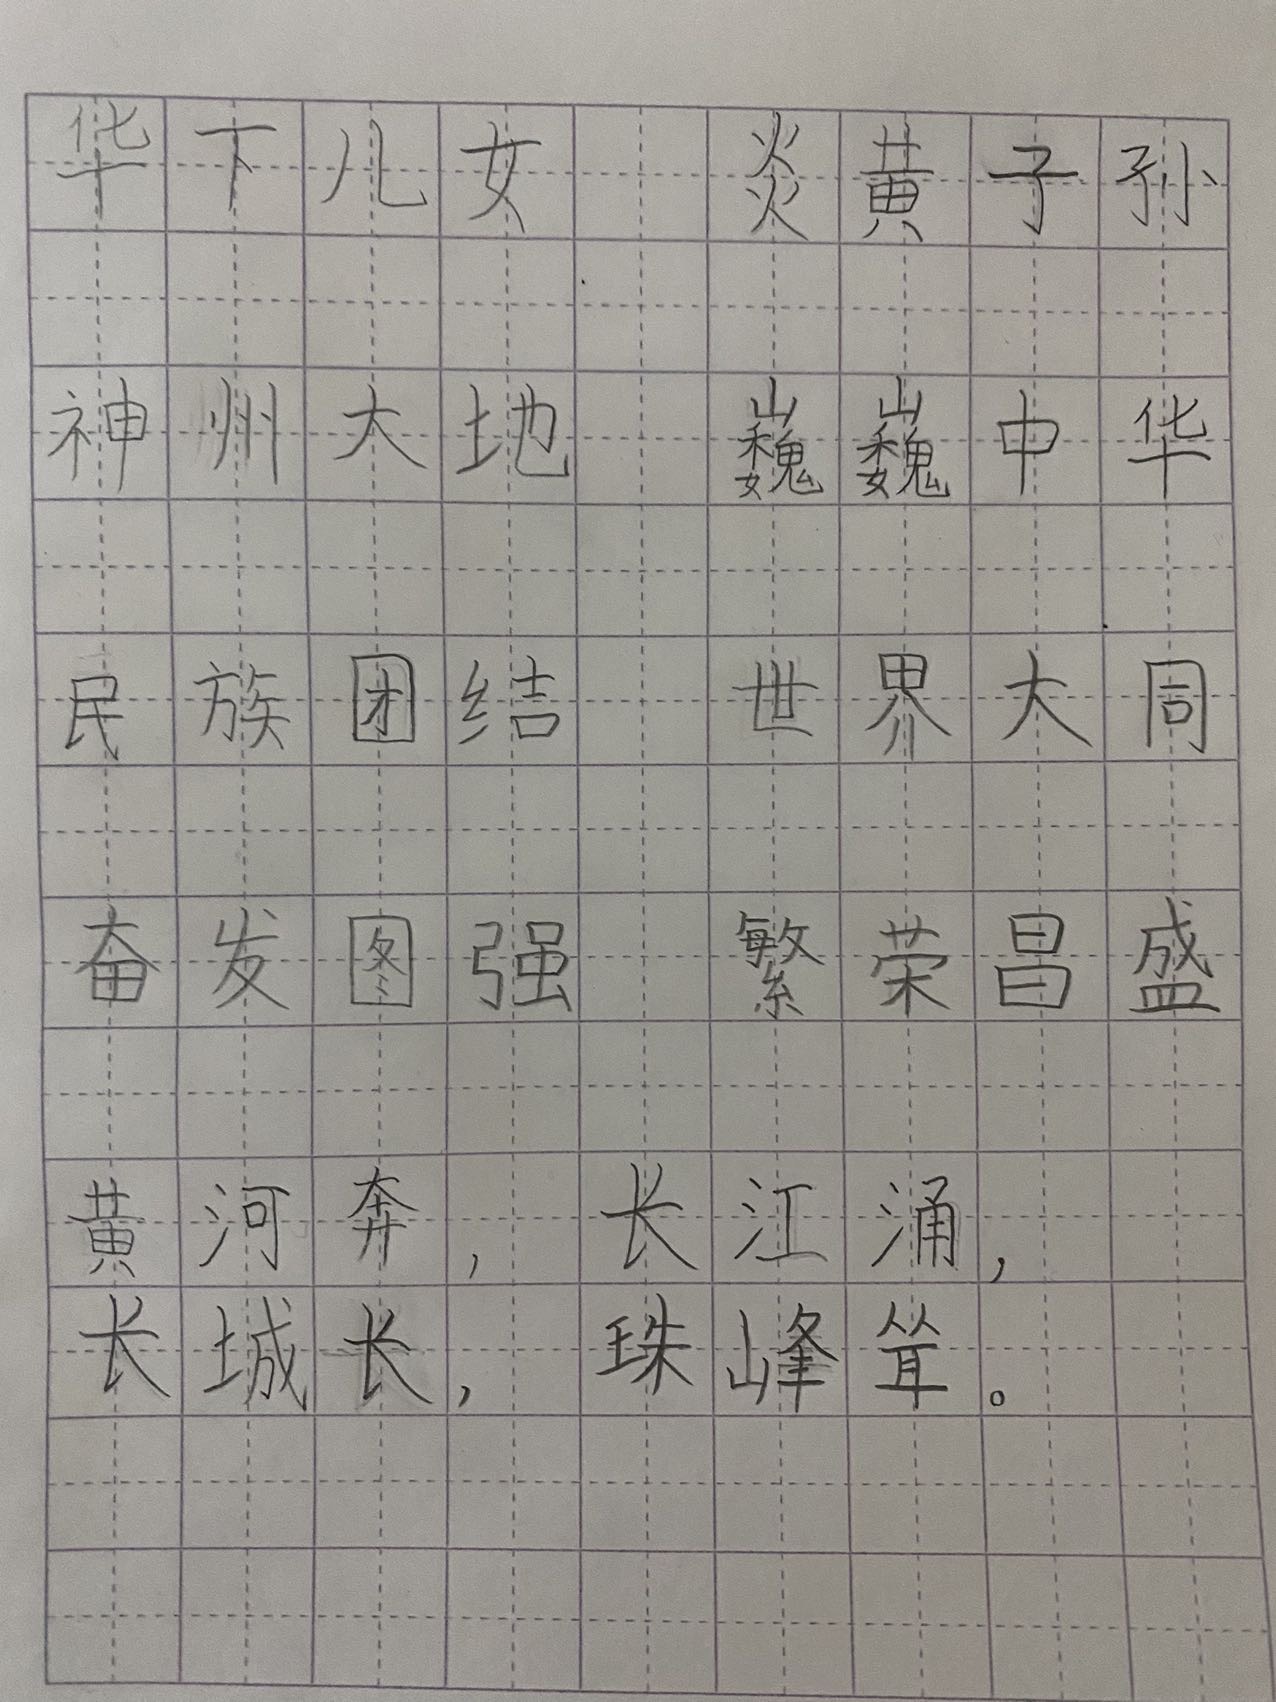 华下儿女 炎黄子孙
神州大地 巍巍中华
民族团结 世界大同
奋发图强 繁荣昌盛
黄河奔，长江涌，
长城长，珠峰耸。